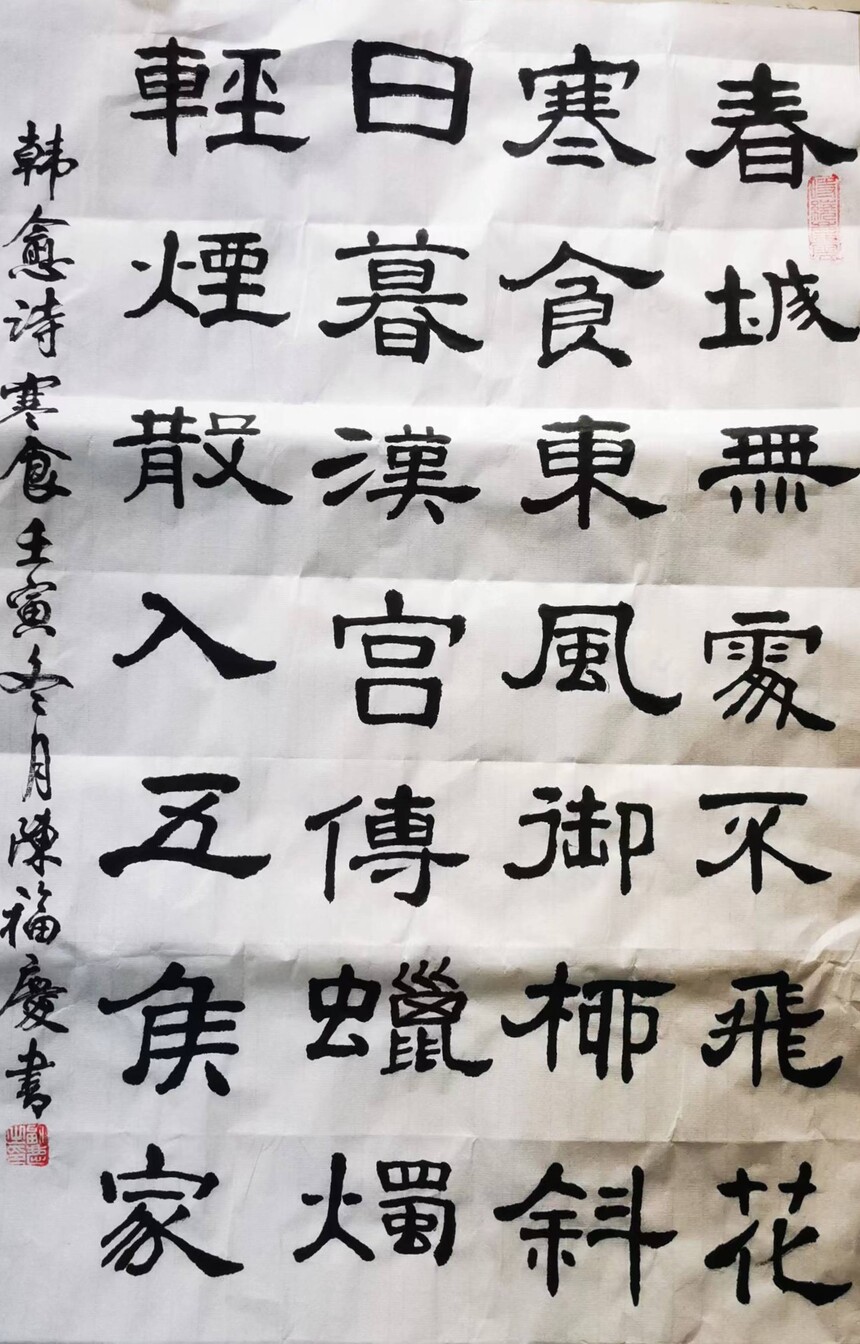 春城無處不飛花
寒食東風御柳斜
日暮漢宮傳蠟燭
輕煙散入五侯家
韩愈诗寒食壬寅冬月陳福慶书